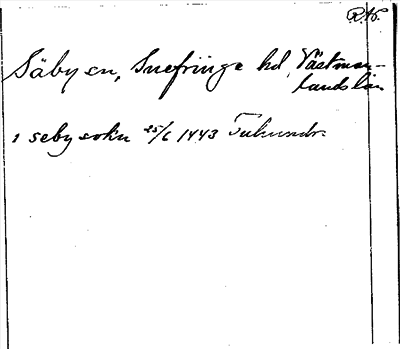 R.A.
Säby sn, Snefringe hd, Västman-
lands län
i seby sokn 25/6 1443